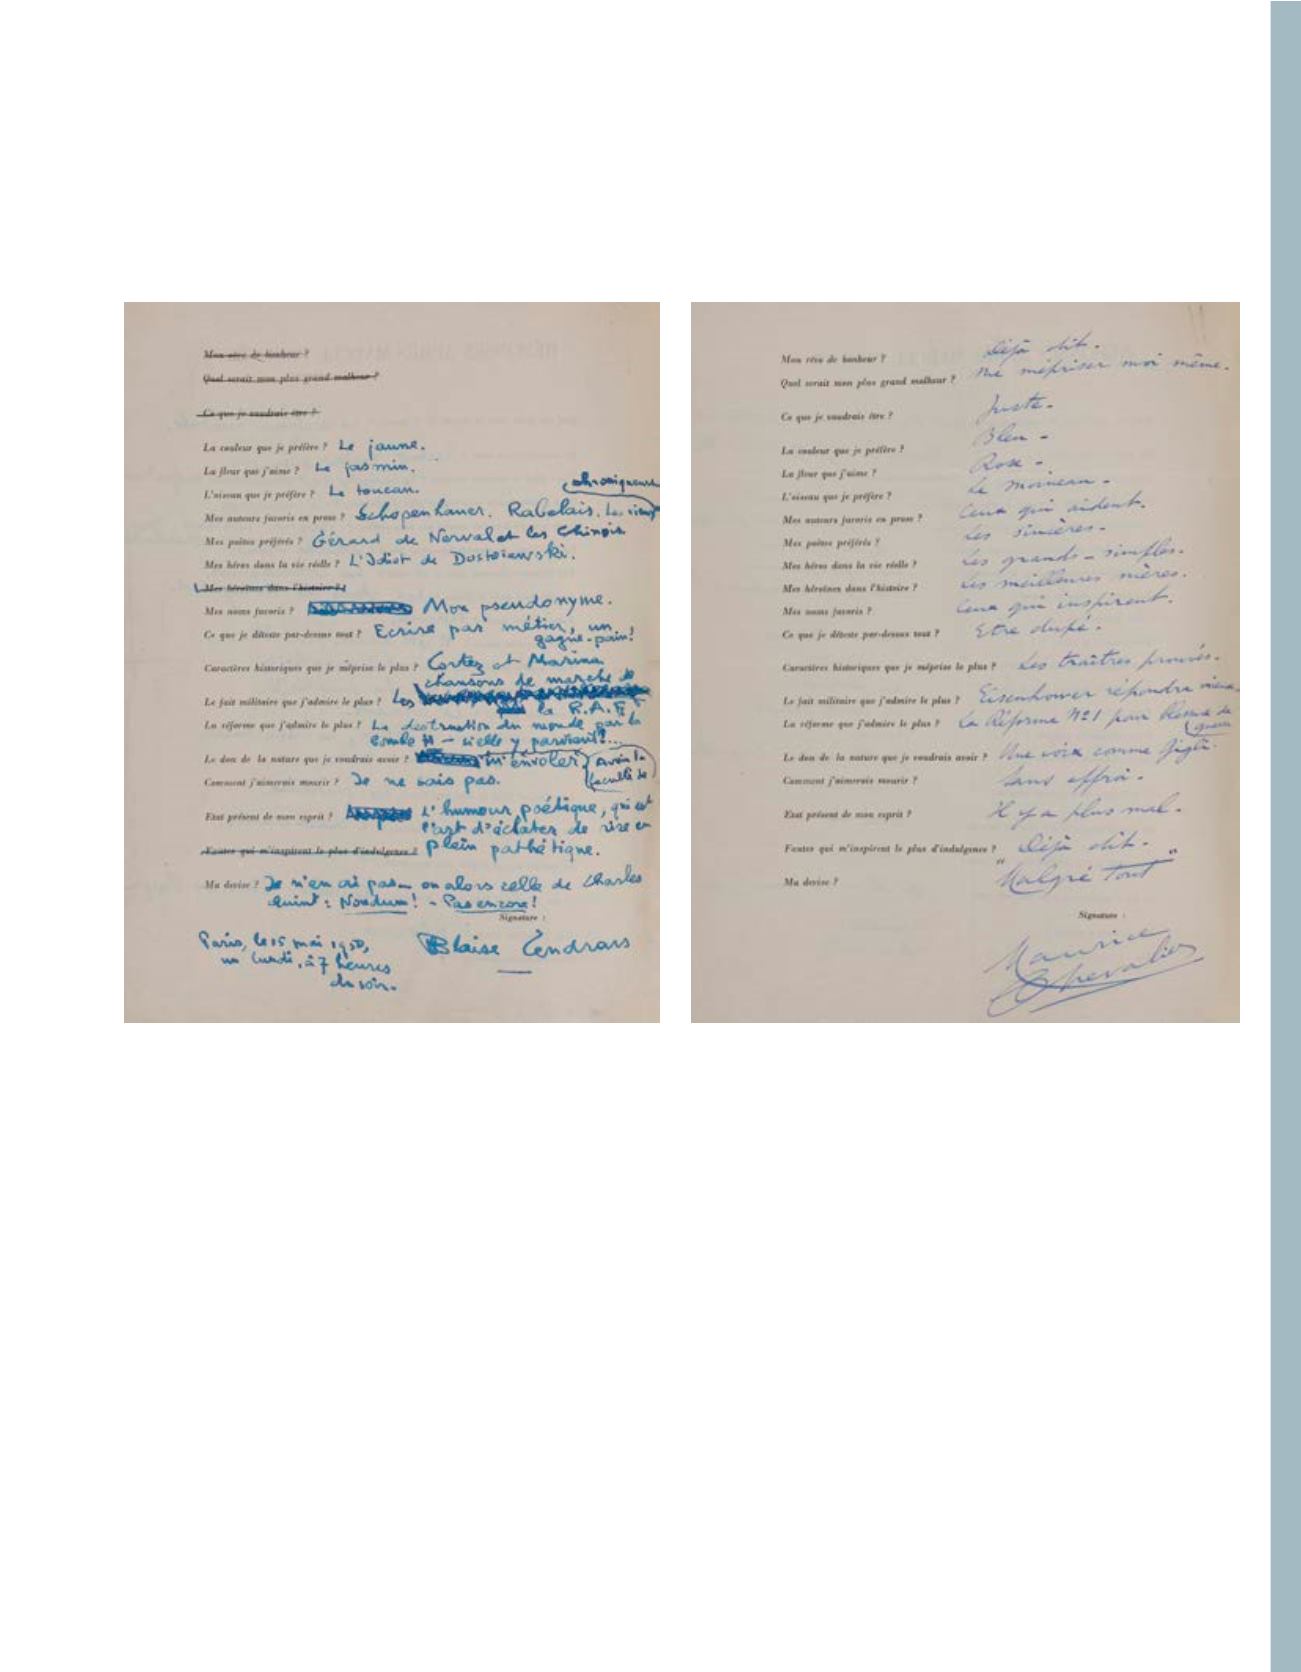 Mon rêve de bonheur ?
Quel serait mon plus grand malheur ?
Ce que je voudrais être ?
La couleur que je préfère ? Le jaune.
La fleur que j'aime ? Le jasmin.
L'oiseau que je préfère ? Le toucan.
chroniqueurs
Mes auteurs favoris en prose ? Schopenhauer. Rabelais. Les vieux
Mes poètes préférés ? Gérard de Nerval et les Chinois
Mes héros dans la vie réelle ? L'Idiot de Dostoïewski.
Mes héroïnes dans l'histoire ?
Mes noms favoris ? Mon pseudonyme.
Ce que je déteste par-dessus tout ? Ecrire par métier, un
gagne-pain!
Caractères historiques que je méprise le plus ? Cortez et Marina
chansons de marche de
Le fait militaire que j'admire le plus ? Les
la R.A.F.
La réforme que j'admire le plus ? La destruction du monde par la
bombe H — si elle y parvient!...
Le don de la nature que je voudrais avoir ? m'envoler. Avoir la
faculté de
Comment j'aimerais mourir ? Je ne sais pas.
Etat présent de mon esprit ? L'humour poétique, qui est
l'art d'éclater de rire en
Fautes qui m'inspirent le plus d'indulgence ? plein pathétique.
Ma devise ? Je n'en ai pas — ou alors celle de Charles
Quint : Nondum! - Pas encore!
Signature :
Paris, le 15 mai 1950,
un lundi, à 7 heures
du soir.
Blaise Cendrars
Mon rêve de bonheur ? Déjà dit.
Quel serait mon plus grand malheur ? Me mépriser moi même.
Ce que je voudrais être ? Juste.
La couleur que je préfère ? Bleu -
La fleur que j'aime ? Rose -
L'oiseau que je préfère ? Le moineau -
Mes auteurs favoris en prose ? Ceux qui aident.
Mes poètes préférés ? Les sincères -
Mes héros dans la vie réelle ? Les grands - simples.
Mes héroïnes dans l'histoire ? Les meilleures mères.
Mes noms favoris ? Ceux qui inspirent.
Ce que je déteste par-dessus tout ? Etre dupé.
Caractères historiques que je méprise le plus ? Les traîtres prouvés.
Le fait militaire que j'admire le plus ? Eisenhower répondra mieux
La réforme que j'admire le plus ? La Réforme N°1 pour blessure de
guerre
Le don de la nature que je voudrais avoir ? Une voix comme Gigli.
Comment j'aimerais mourir ? Sans effroi.
Etat présent de mon esprit ? Il y a plus mal.
Fautes qui m'inspirent le plus d'indulgence ? Déjà dit.
Ma devise ? "Malgré tout"
Signature :
Maurice
Chevalier